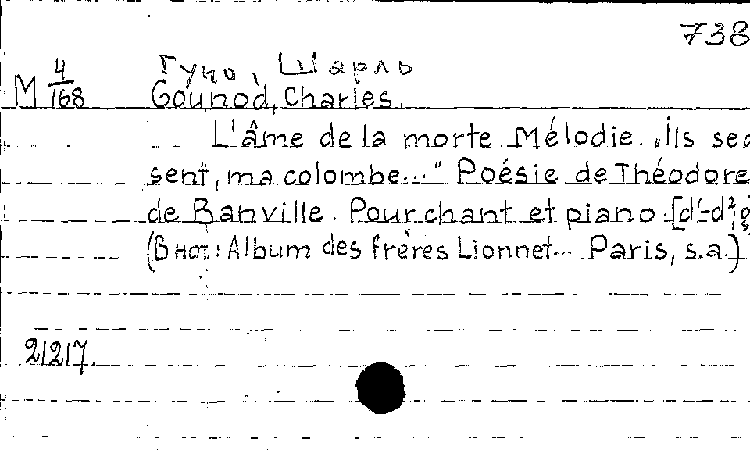 738
Гуно, Шарль
M 4/168 Gounod, Charles.
L'âme de la morte. Mélodie. „Ils se
sent, ma colombe..." Poésie de Théodore
de Banville. Pour chant et piano. [d¹-d²;
(В нот: Album des frères Lionnet... Paris, s.a.)
21217.